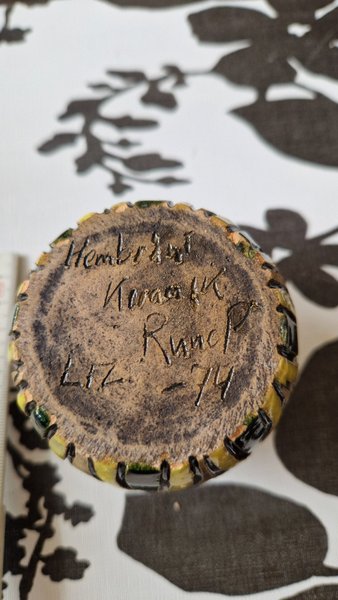 Hembränt
Keramik
Rune P
LTZ - 74